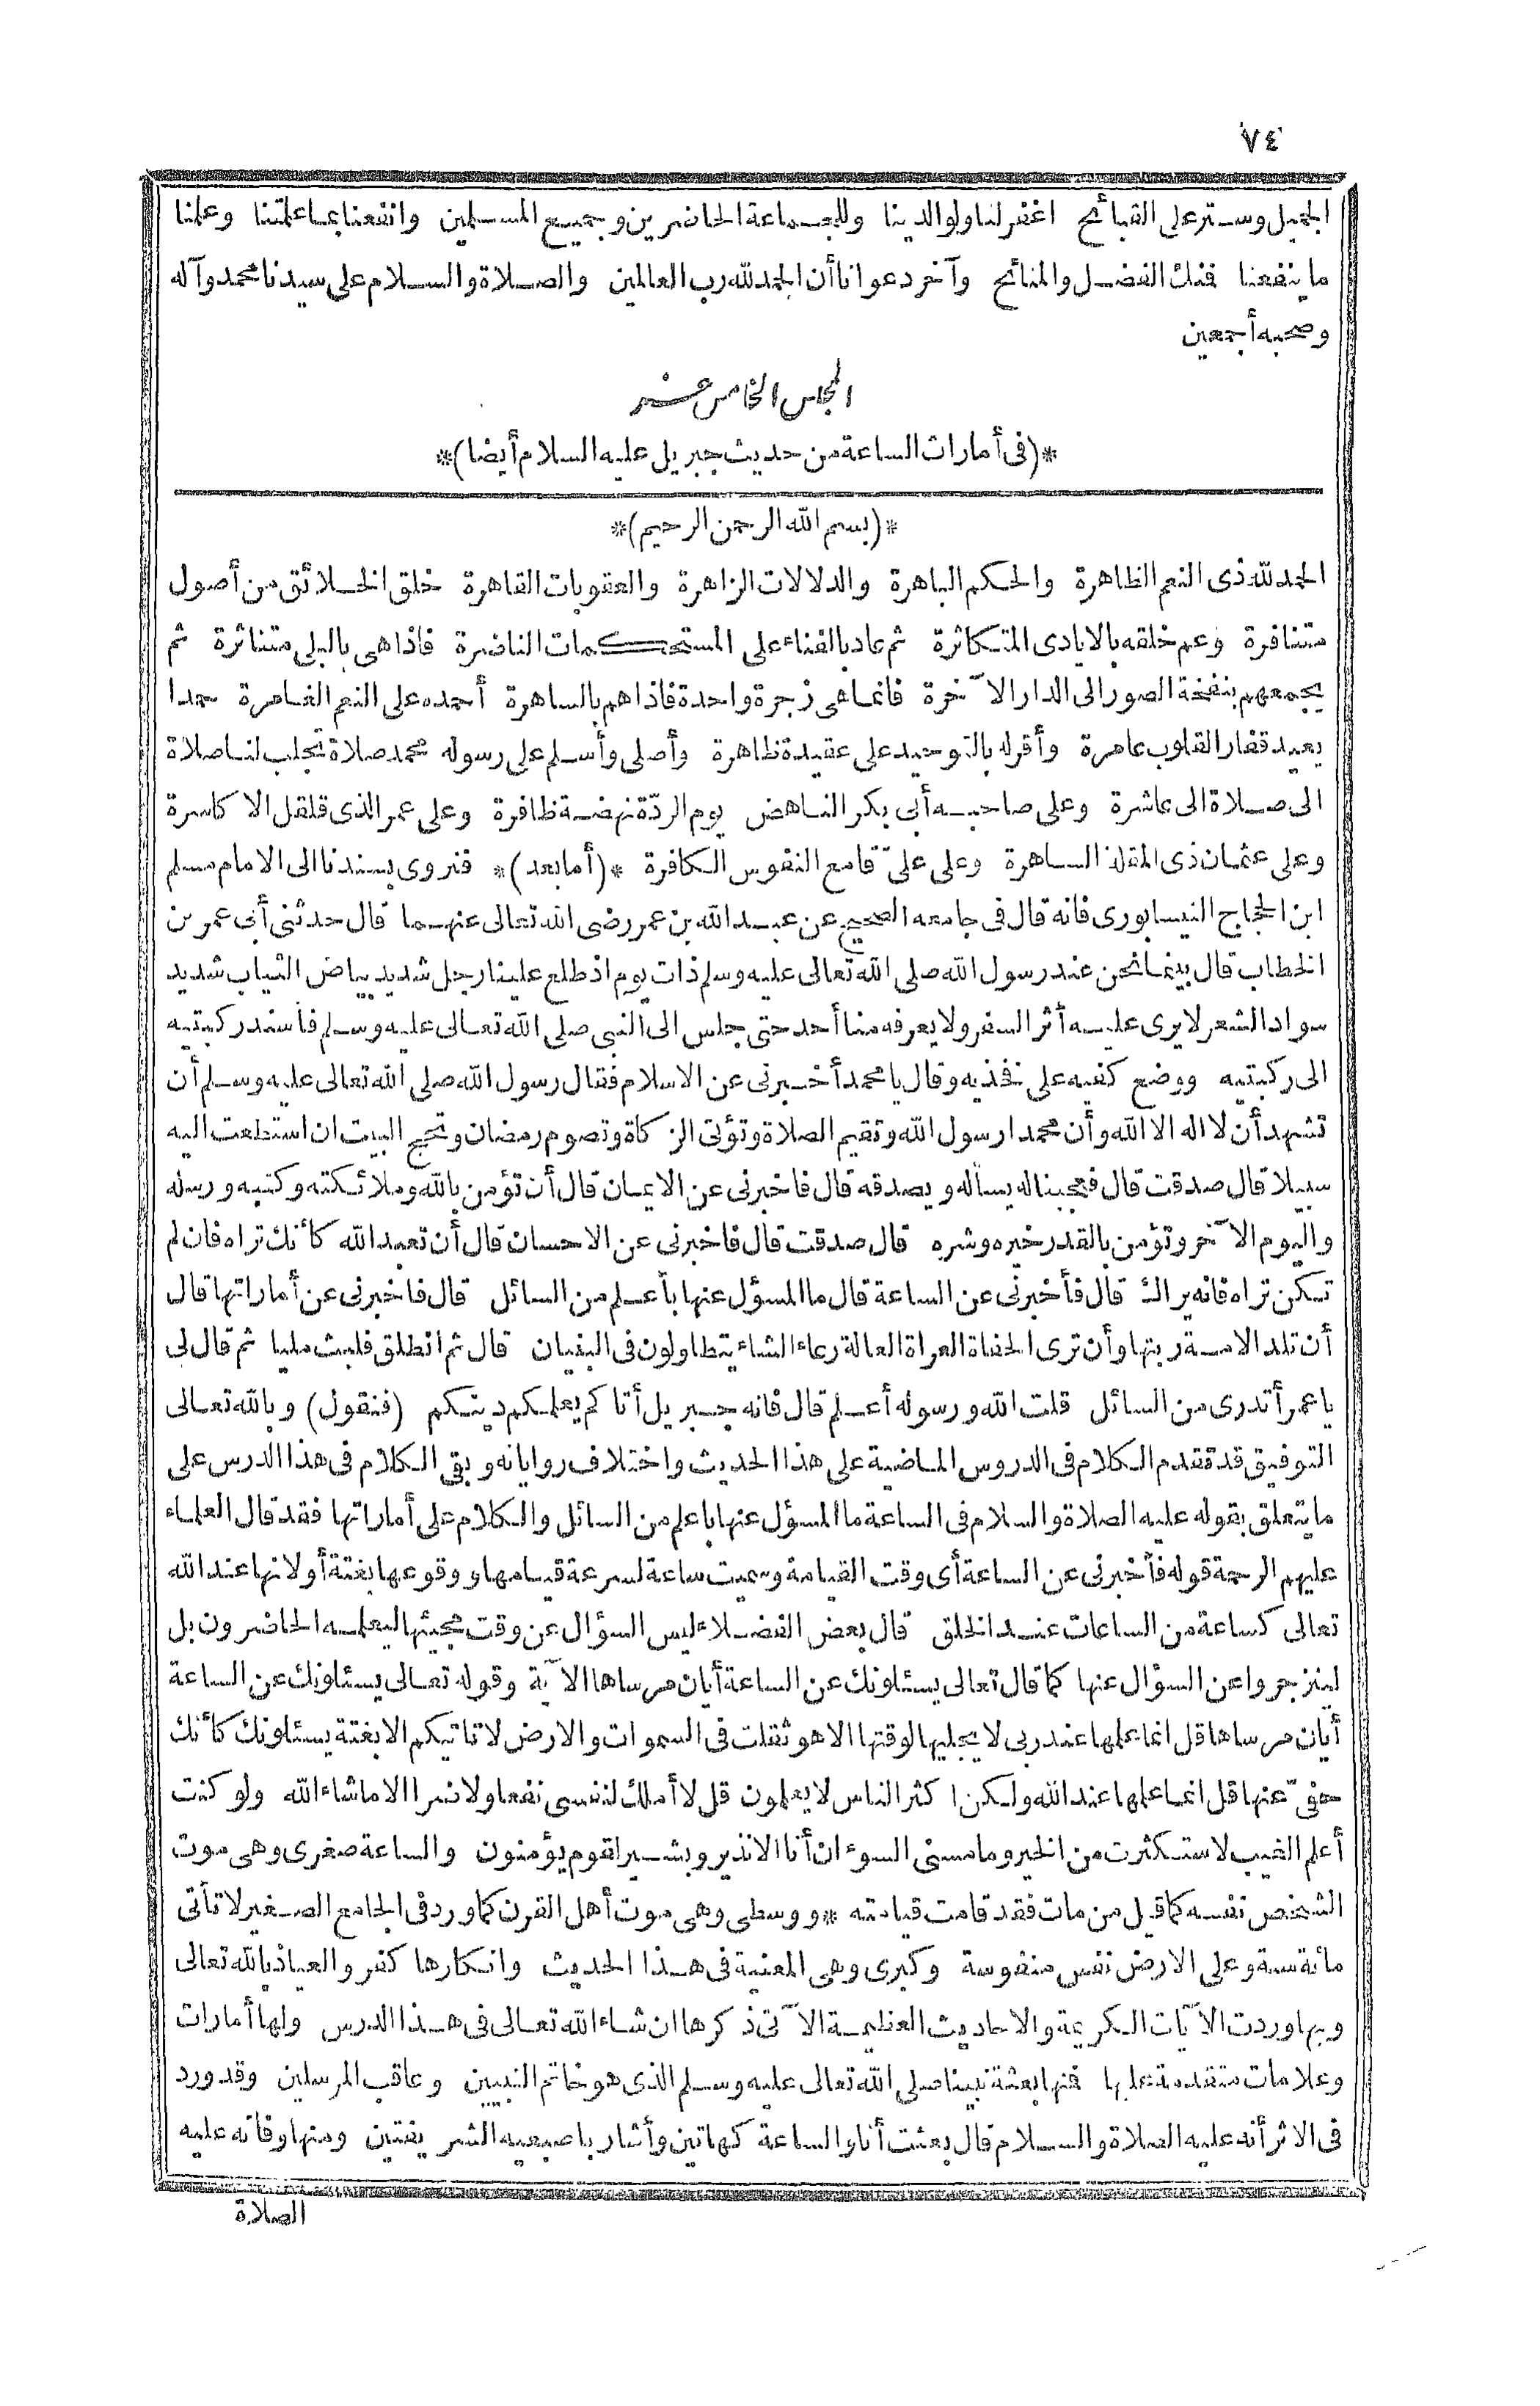 ٧٤
الجميل وستر على القبائح اغفر لنا ولوالدينا وللجماعة الحاضرين وجميع المسلمين وانفعنا بما علمتنا وعلمنا
ما ينفعنا فمنك الفضل والمنائح وآخر دعوانا أن الحمد لله رب العالمين والصلاة والسلام على سيدنا محمد وآله
وصحبه أجمعين
المجلس الخامس عشر
*(فى أمارات الساعة من حديث جبريل عليه السلام أيضا)*
*(بسم الله الرحمن الرحيم)*
الحمد لله ذى النعم الظاهرة والحكم الباهرة والدلالات الزاهرة والعقوبات القاهرة خلق الخلائق من أصول
متنافرة وعم خلقه بالايادى المتكاثرة ثم عاد بالفناء على المستحكمات الناضرة فاذا هى بالبلى متناثرة ثم
يجمعهم بنفخة الصور الى الدار الآخرة فانما هى زجرة واحدة فاذا هم بالساهرة أحمده على النعم الغامرة حمدا
يعيد قفار القلوب عامرة وأقر له بالتوحيد على عقيدة طاهرة وأصلى وأسلم على رسوله محمد صلاة تجلب لنا صلاة
الى صلاة الى عاشرة وعلى صاحبه أبى بكر الناهض يوم الردّة نهضة ظافرة وعلى عمر الذى قلقل الاكاسرة
وعلى عثمان ذى المقلة الساهرة وعلى علىّ قامع النفوس الكافرة *(أما بعد)* فنروى بسندنا الى الامام مسلم
ابن الحجاج النيسابورى فانه قال فى جامعه الصحيح عن عبد الله بن عمر رضى الله تعالى عنهما قال حدثنى أبى عمر بن
الخطاب قال بينما نحن عند رسول الله صلى الله تعالى عليه وسلم ذات يوم اذ طلع علينا رجل شديد بياض الثياب شديد
سواد الشعر لا يرى عليه أثر السفر ولا يعرفه منا أحد حتى جلس الى النبى صلى الله تعالى عليه وسلم فأسند ركبتيه
الى ركبتيه ووضع كفيه على فخذيه وقال يا محمد أخبرنى عن الاسلام فقال رسول الله صلى الله تعالى عليه وسلم أن
تشهد أن لا اله الا الله وأن محمدا رسول الله وتقيم الصلاة وتؤتى الزكاة وتصوم رمضان وتحج البيت ان استطعت اليه
سبيلا قال صدقت قال فعجبنا له يسأله ويصدقه قال فاخبرنى عن الايمان قال أن تؤمن بالله وملائكته وكتبه ورسله
واليوم الآخر وتؤمن بالقدر خيره وشره قال صدقت قال فاخبرنى عن الاحسان قال أن تعبد الله كأنك تراه فان لم
تكن تراه فانه يراك قال فأخبرنى عن الساعة قال ما المسؤل عنها بأعلم من السائل قال فاخبرنى عن أماراتها قال
أن تلد الامة ربتها وأن ترى الحفاة العراة العالة رعاء الشاء يتطاولون فى البنيان قال ثم انطلق فلبث مليا ثم قال لى
يا عمر أتدرى من السائل قلت الله ورسوله أعلم قال فانه جبريل أتاكم يعلمكم دينكم (فنقول) وبالله تعالى
التوفيق قد تقدم الكلام فى الدروس الماضية على هذا الحديث واختلاف رواياته وبقى الكلام فى هذا الدرس على
ما يتعلق بقوله عليه الصلاة والسلام فى الساعة ما المسؤل عنها باعلم من السائل والكلام على أماراتها فقد قال العلماء
عليهم الرحمة قوله فأخبرنى عن الساعة أى وقت القيامة وسميت ساعة لسرعة قيامها ووقوعها بغتة أو لانها عند الله
تعالى كساعة من الساعات عند الخلق قال بعض الفضلاء ليس السؤال عن وقت مجيئها ليعلمه الحاضرون بل
لينزجروا عن السؤال عنها كما قال تعالى يسئلونك عن الساعة أيان مرساها الآية وقوله تعالى يسئلونك عن الساعة
أيان مرساها قل انما علمها عند ربى لا يجليها لوقتها الا هو ثقلت فى السموات والارض لا تاتيكم الا بغتة يسئلونك كأنك
حفىّ عنها قل انما علمها عند الله ولكن اكثر الناس لا يعلمون قل لا أملك لنفسى نفعا ولا ضرا الا ما شاء الله ولو كنت
أعلم الغيب لاستكثرت من الخير وما مسنى السوء ان أنا الا نذير وبشير لقوم يؤمنون والساعة صغرى وهى موت
الشخص نفسه كما قيل من مات فقد قامت قيامته * ووسطى وهى موت أهل القرن كما ورد فى الجامع الصغير لا تأتى
مائة سنة وعلى الارض نفس منفوسة وكبرى وهى المعنية فى هذا الحديث وانكارها كفر والعياذ بالله تعالى
وبها وردت الآيات الكريمة والاحاديث العظيمة الآتى ذكرها ان شاء الله تعالى فى هذا الدرس ولها أمارات
وعلامات متقدمة عليها فمنها بعثة نبينا صلى الله تعالى عليه وسلم الذى هو خاتم النبيين وعاقب المرسلين وقد ورد
فى الاثر أنه عليه الصلاة والسلام قال بعثت أنا والساعة كهاتين وأشار باصبعيه الشريفتين ومنها وفاته عليه
الصلاة